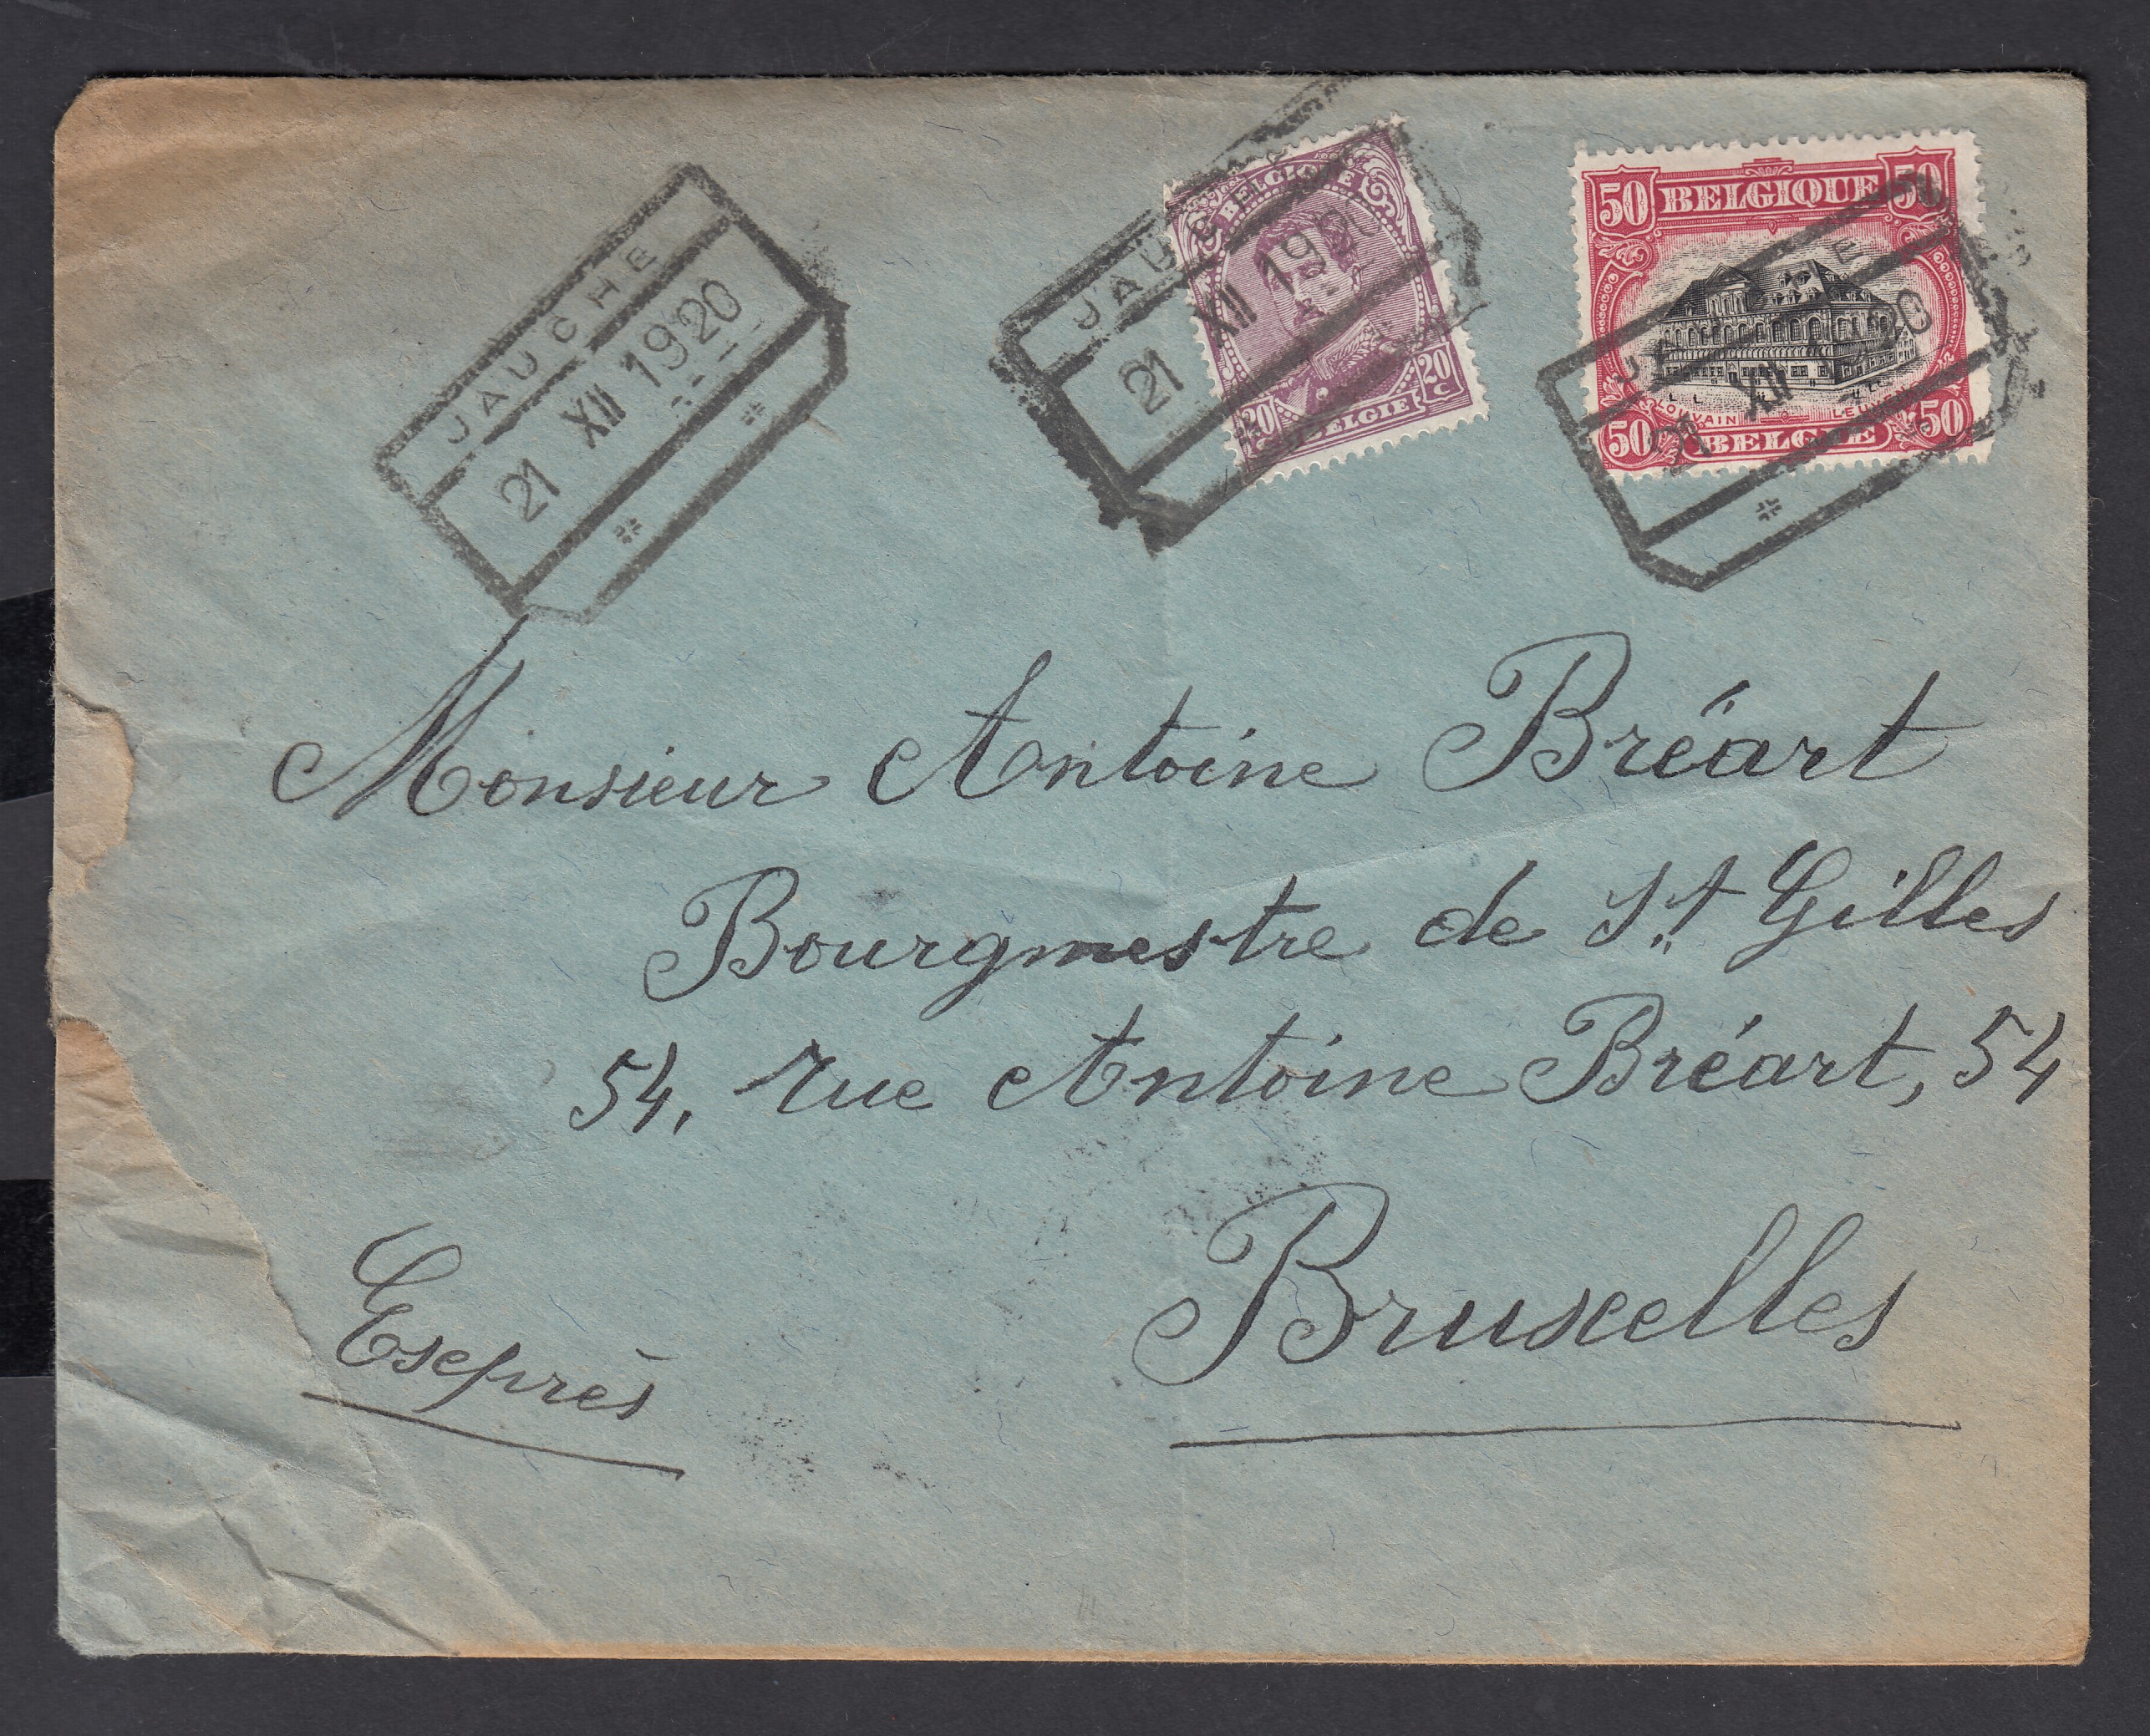 JAUCHE
21 XII 1920
JAUCHE
21 XII 192
BELGIQUE
20 20
C
BELGIE
50 BELGIQUE 50
JAUCHE
21 XII 1920
LOUVAIN LEUVEN
50 BELGIE 50
Monsieur Antoine Bréart
Bourgmestre de St Gilles
54, rue Antoine Bréart, 54
Bruxelles
Exprès